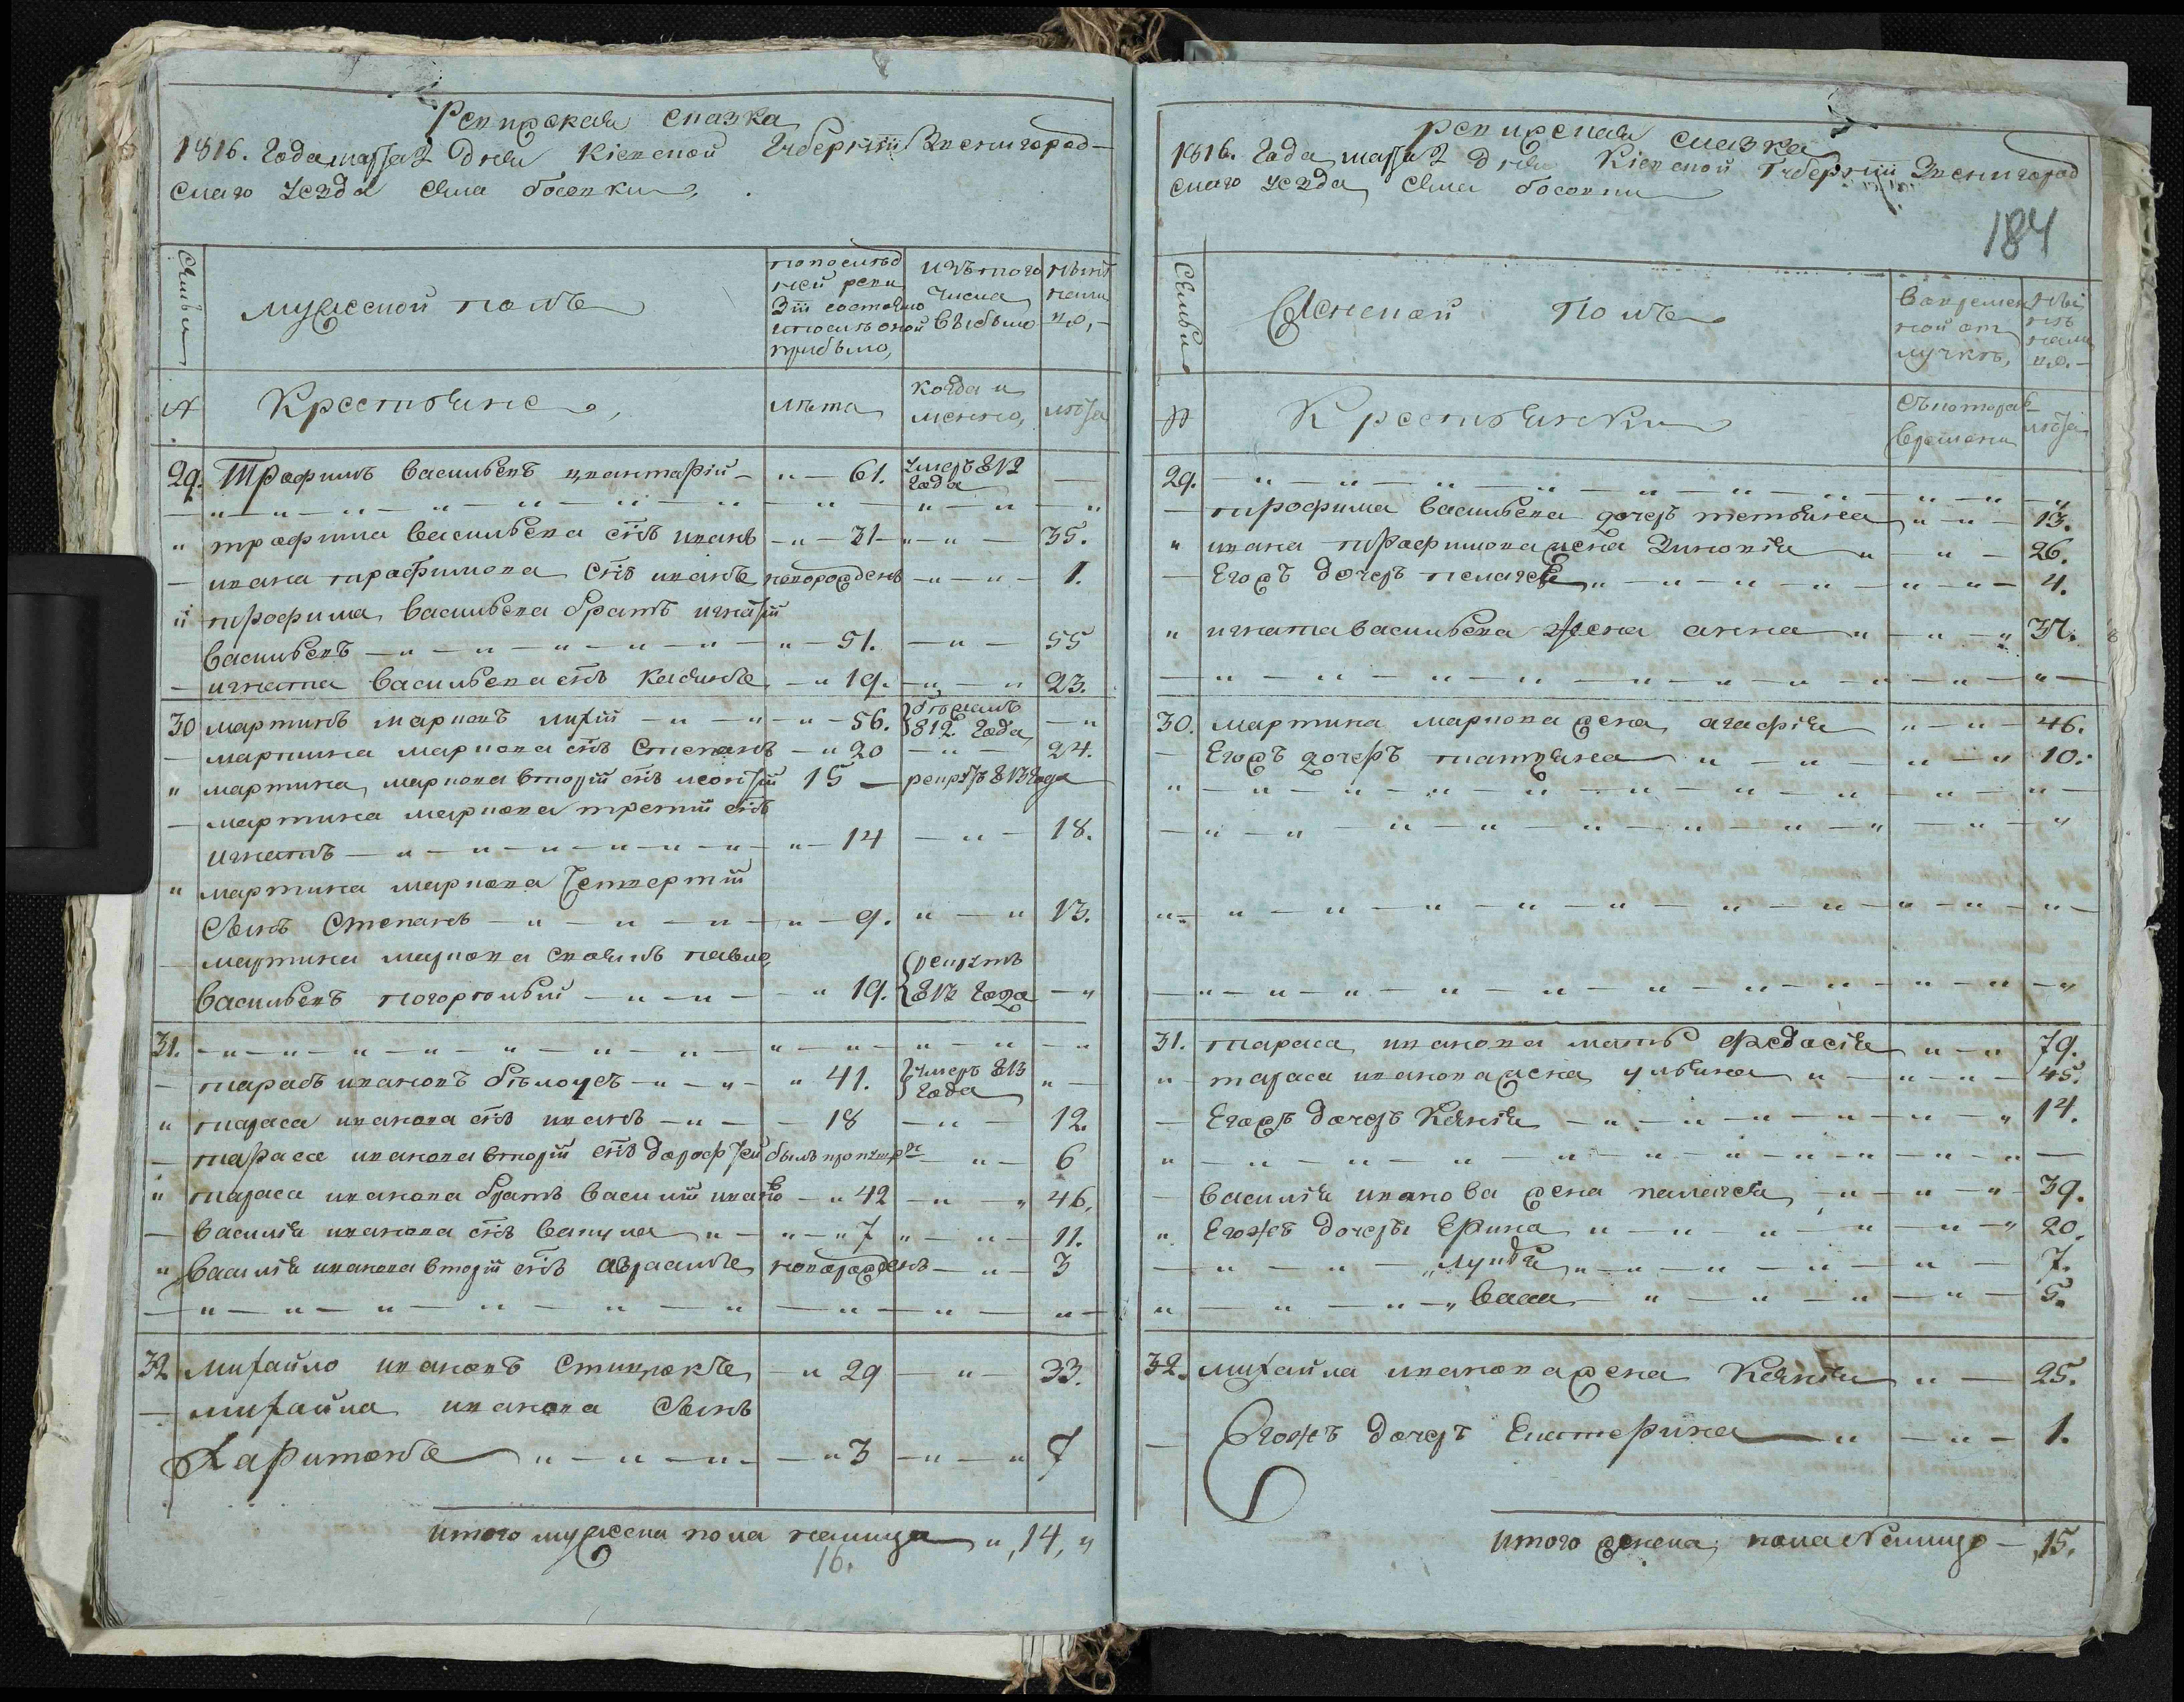 Ревизская сказка
1816. Года марта 2 дня Киевской Губернии Звенигород-
скаго уезда села босовки,
Семьи
мужеской полъ
по последней ревизіи состояло и после оной прибыло,
изъ того числа выбыло
ныне налицо,
№
Крестьяне,
лета
когда именно,
лета
29. Трофимъ васильевъ 61. умеръ 812 года
трофима васильева снъ иванъ 31 35.
ивана трофимова снъ иванъ новорожденъ 1.
трофима васильева братъ игнатій
васильевъ 51. 55
игната васильева снъ 19. 23.
30 мартинъ марковъ 56. бежалъ 812. года
мартина маркова снъ Степанъ 20 24.
мартина маркова вторій снъ леонтій 15 рекрутъ 813 года
мартина маркова третій снъ
игнатъ 14 18.
мартина маркова Четвертій
Сынъ Степанъ 9. 13.
мартина маркова своякъ павло
васильевъ погорлоный 19. рекрутъ 812 года
31.
тарасъ ивановъ белоусъ 41. умеръ 813 года
тараса иванова снъ иванъ 18 12.
тараса иванова вторій снъ дорофтей былъ 6
тараса иванова братъ василій 42 46.
василія иванова снъ вакула 7 11.
василія иванова вторій снъ авраамъ новорожденъ 3
32 михайло ивановъ 29 33.
михайла иванова Сынъ
Харитонъ 3 7
итого мужеска пола налицо 14,
16.
ревизская сказка
1816. Года марта 2 дня Киевской Губерніи Звенигород
скаго уезда, села босовки
184
Семьи
Женской полъ
во временной отлучке,
ныне налицо.
№
Крестьянки
съ которого времени
лета
29.
трофима васильева дочерь тетьяна 13.
ивана трофимова жена Зиновія 26.
Егожъ дочерь пелагея 4.
игната васильева жена анна 37.
30. мартина маркова жена агафія 46.
Егожъ дочерь татіяна 10.
31. тараса иванова мать федосія 79.
тараса иванова жена ульяна 45.
Егожъ дочерь Ксенія 14.
василія иванова жена палагея 39.
Егожъ дочеры Ерина 20.
7.
васа 5.
32. михайла иванова жена Ксенія 25.
Егожъ дочерь Екатерина 1.
итого женска пола налицо 15.